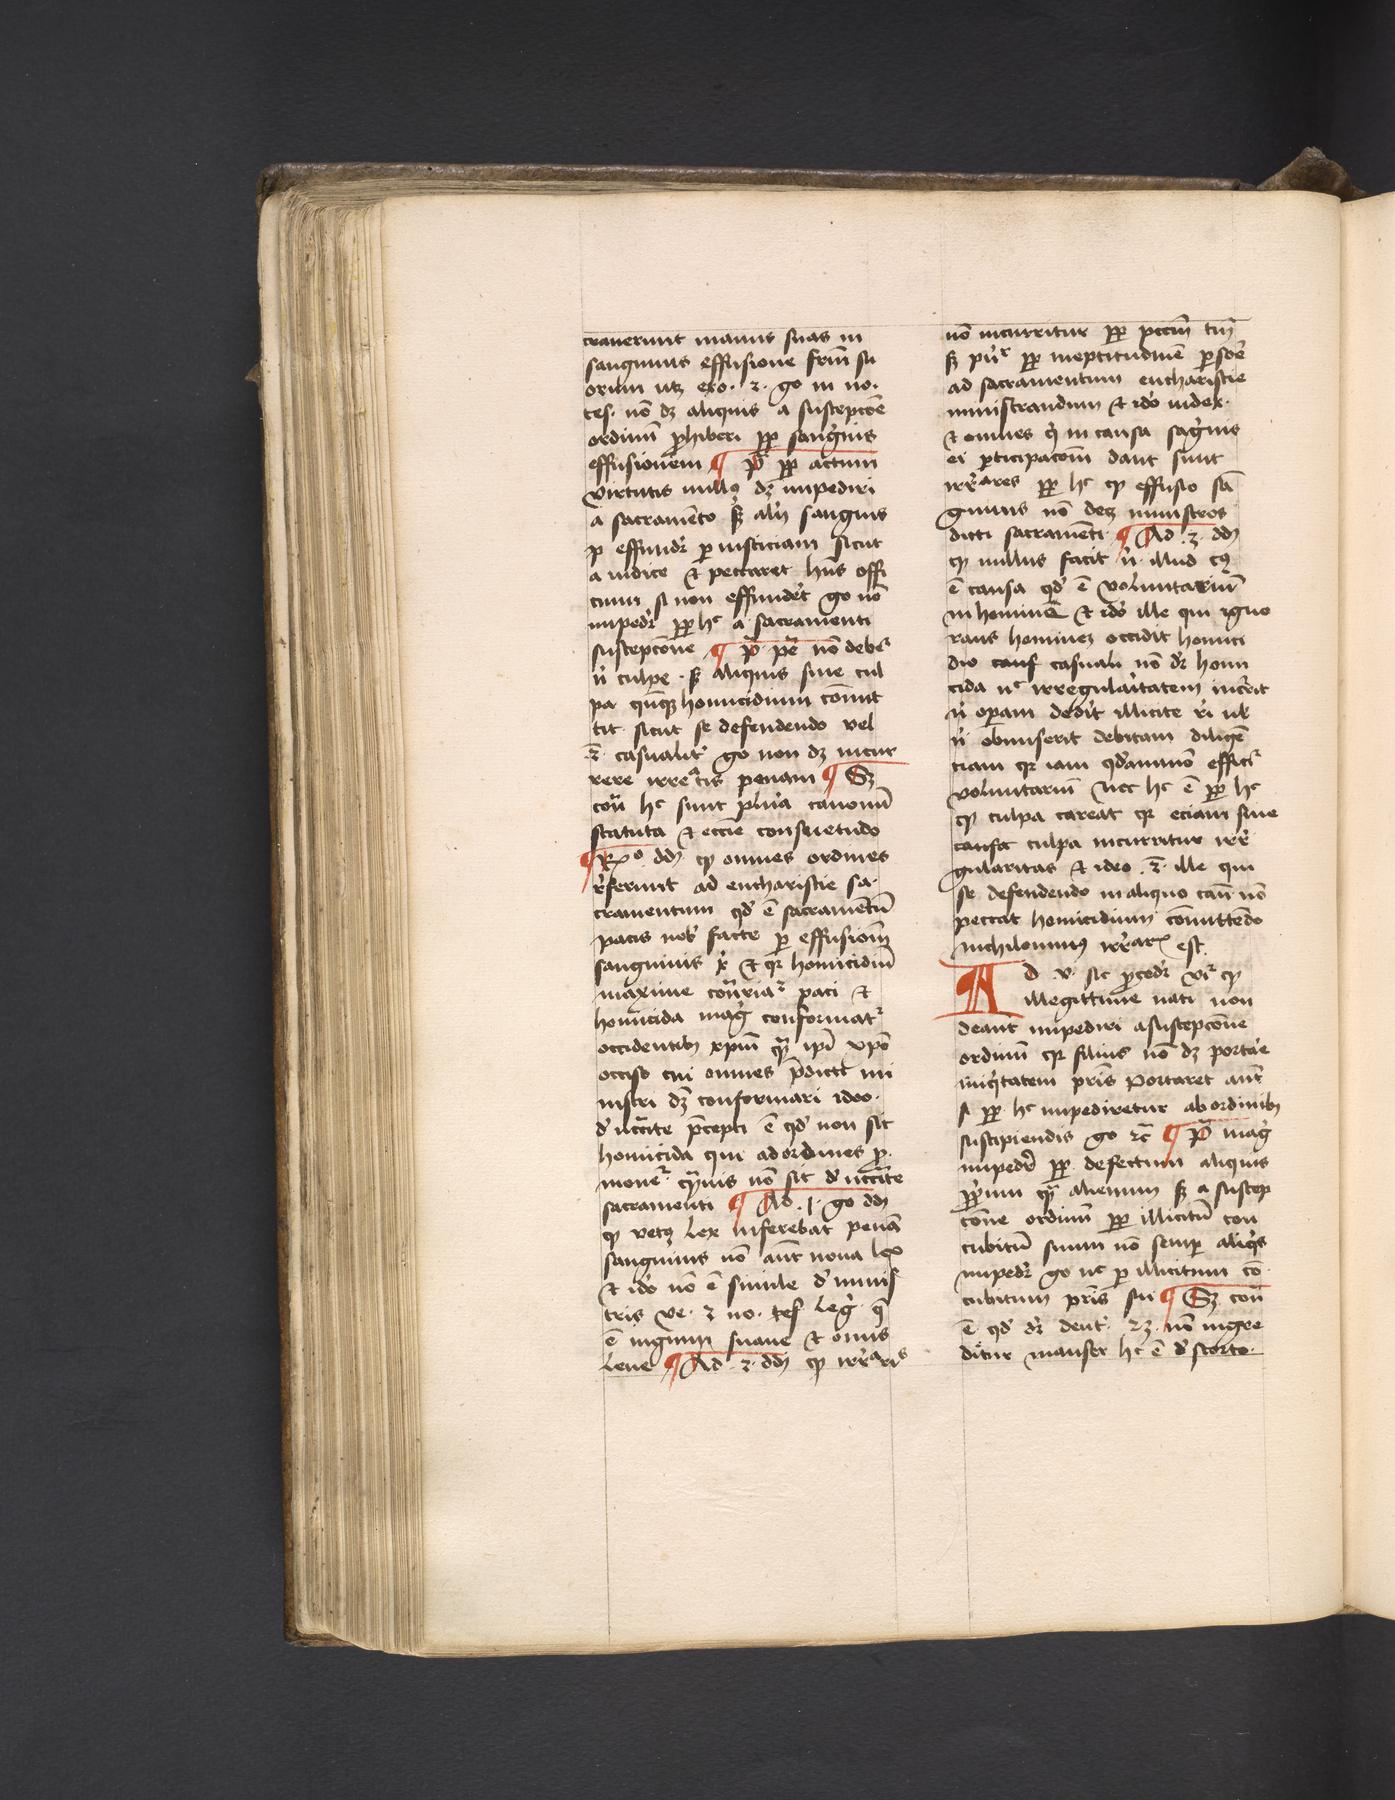 craverunt manus suas in
sanguinis effusione frm̄ su
orum utꝫ exo. 2. gͦ in no.
tes. nō dꝫ aliquis a susceptōe
ordinū ꝓhiberi ꝓp̄ sangͥnis
effusionem ¶ P̄ ꝓp̄ actum
virtutis nullꝰ dꝫ impediri
a sacramēto sꝫ aliqn̄ sanguis
effundit̄ ꝑ iusticiam sicut
a iudice ⁊ peccaret hn̄s offi
cium si non effunderet gͦ nō
impedit̄ ꝓp̄ hͨ a sacramenti
susceptōne ¶ P̄ pē nō debet̄
nͥ culpe. sꝫ aliquis sine cul
pa qn̄qꝫ homicidium cōmit
tit. sicut se defendendo vel
ē. casualit̄ gͦ non dꝫ incur
rere irreᵃtis penam ¶ Sꝫ
cōn̄ hͨ sunt plͥa canonū
statuta ⁊ ecc̄ie consuetudo
¶ Rͦ dd̄ qꝫ omnes ordines
referunt ad eucharistie sa.
cramentum qd̓ ē sacramētū
pacis nob̓ facte ꝑ effusionē
sanguinis x̄ ⁊ qꝛ homicidiū
maxime cōn̄riat̄ paci ⁊
homicida magͥ conformat̄
occidentibꝰ xp̄m qᷓ ip̄i xpō
occiso cui omnes p̄dicti mi
nistri dꝫ conformari ideo.
d̓ ncc̄ite p̄cepti ē qd̓ non sit
homicida qui ad ordines ꝓ
mouet̄ qᷓuis nō sit d̓ ncc̄ite
sacramenti ¶ Ad .1. gͦ dd̄
qꝫ vetꝰ lex inferebat penā
sanguinis nō aūt noua lex
⁊ idō nō ē simile d̓ minis
tris ve. ⁊ no. tes. legͥ. qᷓ
ē iugum suaue ⁊ onus
leue ¶ Ad .2. dd̄ qꝫ irrᵃris
nō incurritur ꝓp̄ pccm̄ tm̄
sꝫ pn̄ͬ ꝓp̄ ineptitudinē ꝑsōe
ad sacramentum eucharistie
ministrandum ⁊ idō iudex.
⁊ omnes qͥ in causa sāgͥnis
ei ꝑticipacōm dant sunt
irrᵃres ꝓp̄ hͨ qꝫ effusio sā
guinis nō decꝫ ministros
dicti sacramēti ¶ Ad .3. dd̄
qꝫ nullus facit nͥ illud cꝰ
ē causa qd̓ ē voluntariū
in homine ⁊ idō ille qui igno
rans hominēꝫ occidit homici
dio casuali nō dr̄ homi
cida nͨ irregularitatem incͥrit
nͥ operam dedit illicite rͥi ul̓
nͥ obmiserit debitam diligē
ciam qꝛ iam qd̓ammō efficit̄
voluntariū Nec hͨ ē ꝓp̄ hͨ
qꝫ culpa careat qꝛ eciam sine
culpa incurritur irre
gularitas ⁊ ideo .ē. ille qui
se defendendo in aliquo casu nō
peccat homicidium cōmittēdo
nichilominus irrᵃrͬ est.
Ad v. sic ꝓcedit̄ vr̄ qꝫ
illegittime nati non
deant impediri a susceptōne
ordinū qꝛ filius nō dꝫ portare
iniqͥtatem pr̄is Portaret aūt
si ꝓp̄ hͨ impediretur ab ordinibꝰ
suscipiendis gͦ ⁊c̄ ¶ P̄ magͥ
impedit̄ ꝓp̄ defectum aliquis
ꝓp̄ium qᷓ alienum sꝫ a suscep
tōne ordinū ꝓp̄ illicitū con
cubitū suum nō semꝑ aliqͥs
impedit̄ gͦ nͨ ꝑ illicitum cō
cubitum pr̄is sui ¶ Sꝫ cōn̄
ē qd̓ dr̄ deut̓. 23. nō ingre
ditur manser hͨ ē d̓ scorto.